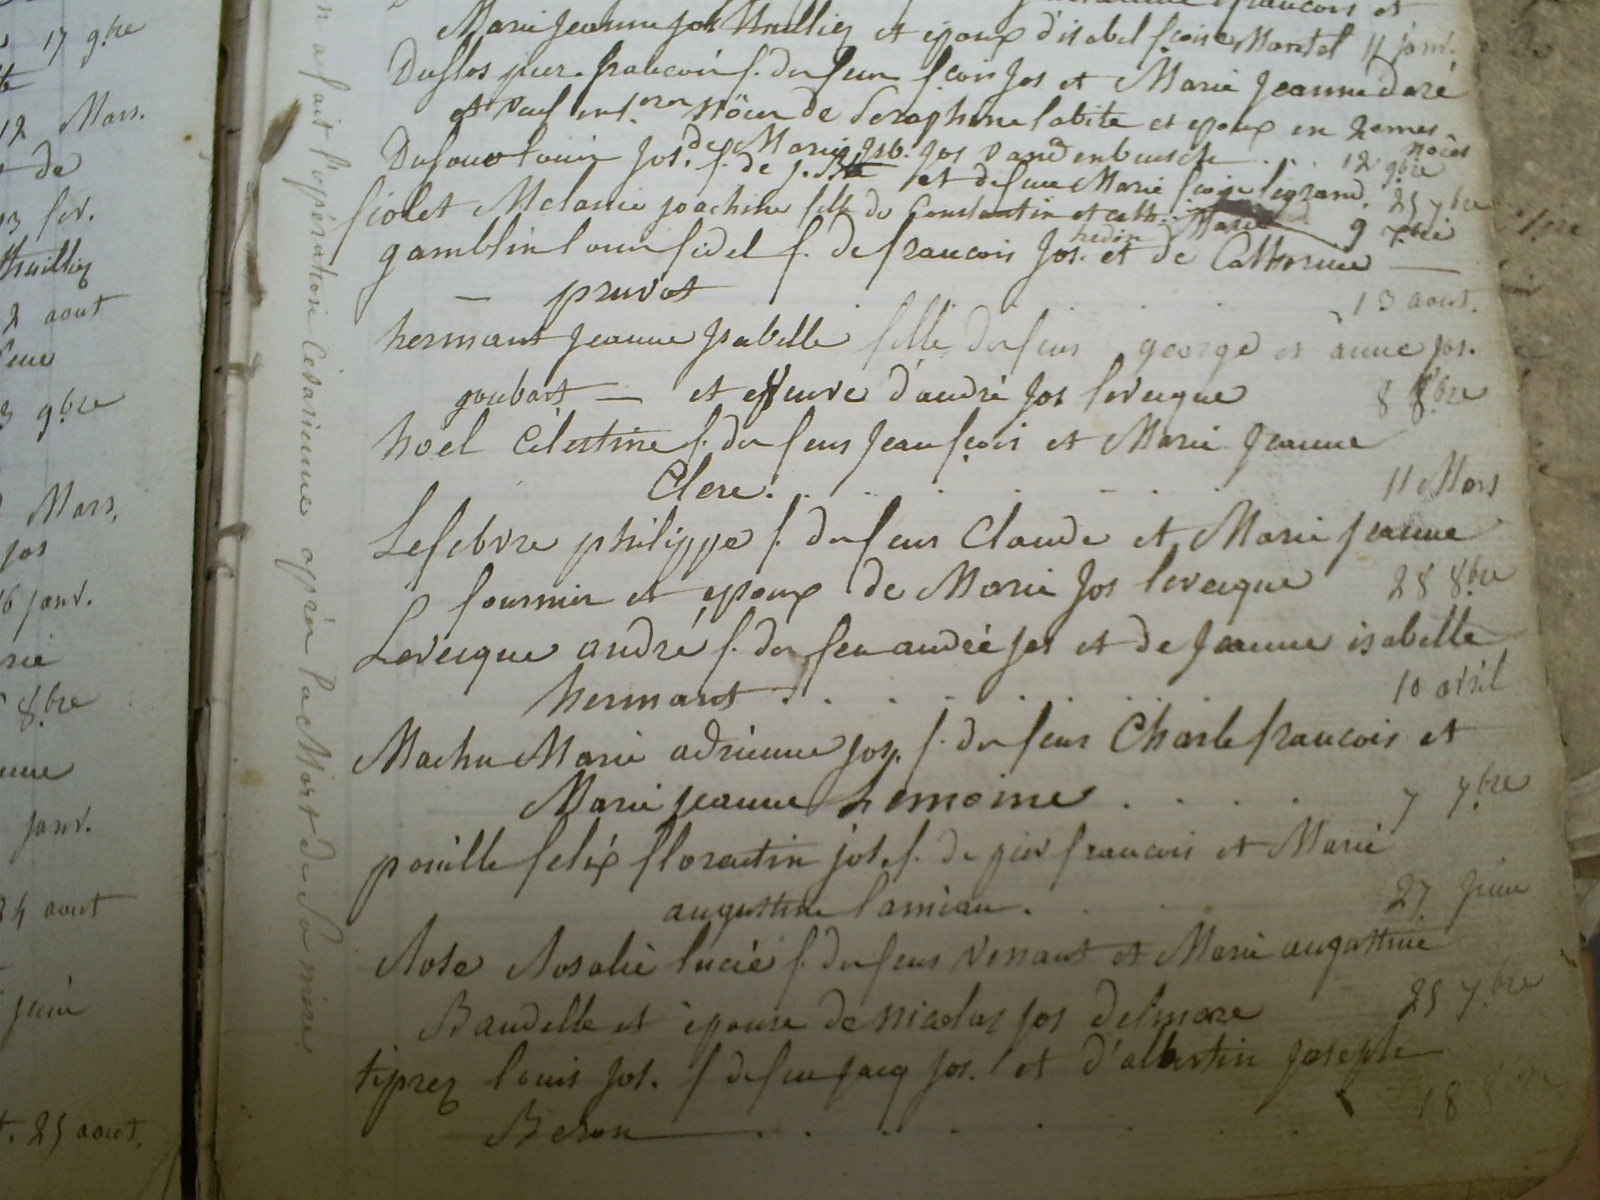 17 9bre
12 Mars.
de
13 fev.
thuilliez
2 aout
3 9bre
Mars,
jos
16 janv.
8bre
janv.
24 aout
juin
25 aout.
a fait l'opération Césarienne après la Mort de Sa mere
françois et
Marie jeanne jos thuilliez et epoux d'isabel fçoise Martel 11 janv.
Duflos pier françois f. de feu fçois jos et Marie jeanne daré
et veuf en 1.ere nôces de Seraphine labitte et epoux en 2emes noces
de Marie isb. jos Vandenbussche . . . 12 9bre
Dufour louis jos. f. de j. Bte et defeue Marie fçoise legrand. 25 7bre
fiolet Melanie joachine fille de Constantin et cath. hedin 9 7bre
gamblin louis fidel f. de françois jos. et de Catherine
pruvot 13 aout.
hermant jeanne isabelle fille de feus george et anne jos.
goubart et veuve d'andré jos leveque 8 8bre
hoel Celestine f. de feus jean fçois et Marie jeanne
Clere. 11 Mars
Lefebvre philippe f. de feus Claude et Marie jeanne
fournier et epoux de Marie jos leveque 28 8bre
Leveque andré f. de feu andré jos et de jeanne isabelle
hermant 10 avril
Machu Marie adrienne jos. f. de feus Charle françois et
Marie jeanne Lemoine . . . . 7 7bre
pouille felix florentin jos. f. de pier françois et Marie
augustine lamiau. 27 juin
Rose Rosalie lucie f. de feus Venant et Marie augustine
Baudelle et epouse de nicolas jos delmare 25 7bre
tiprez louis jos. f de feu jacq jos. et d'albertin joseph
Beron 18